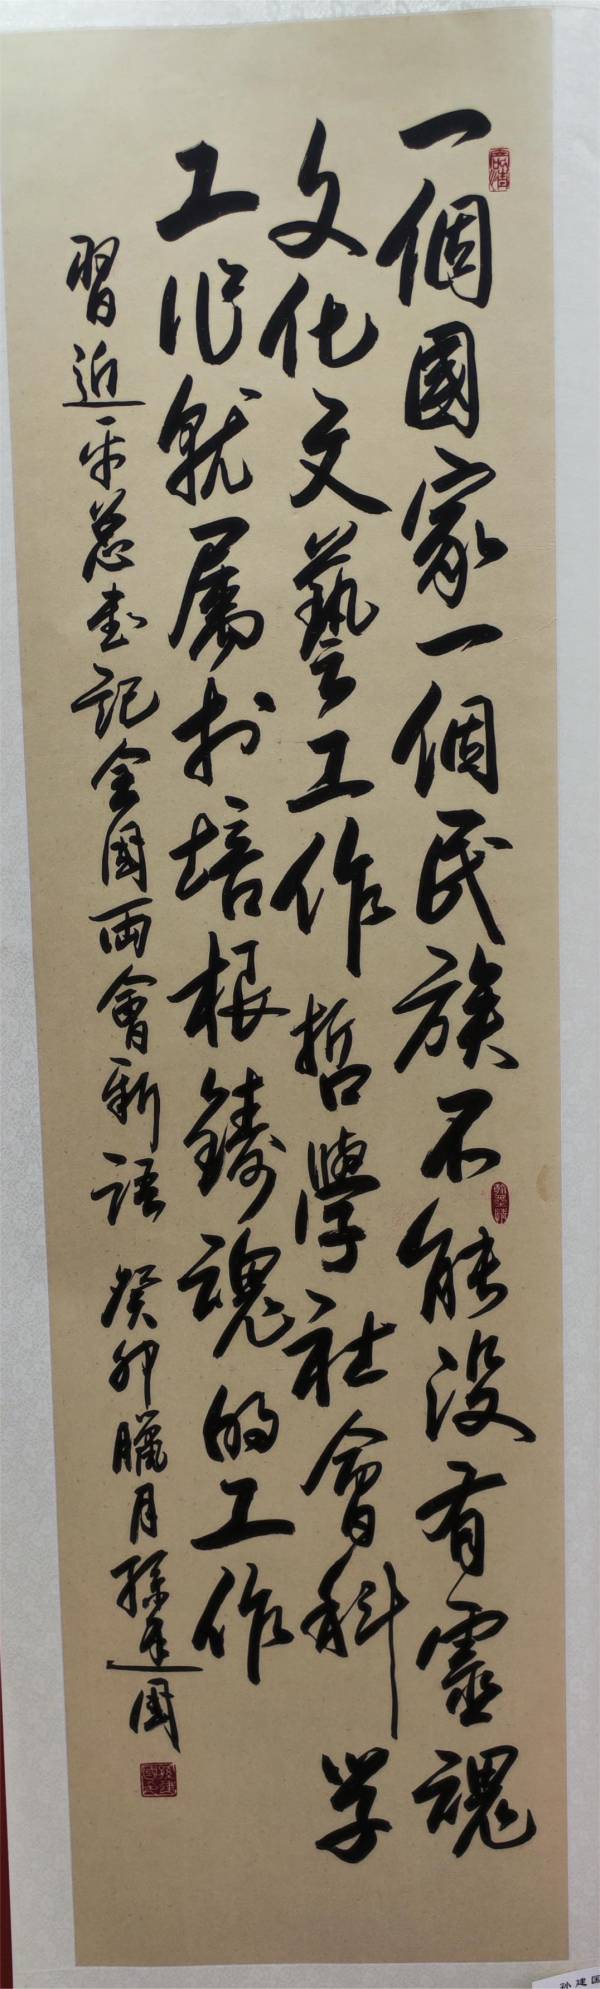 一個國家一個民族不能没有靈魂
文化文藝工作哲學社會科学
工作就属於培根鑄魂的工作
習近平总書記全國两會新語 癸卯臘月孫建國
孙建国